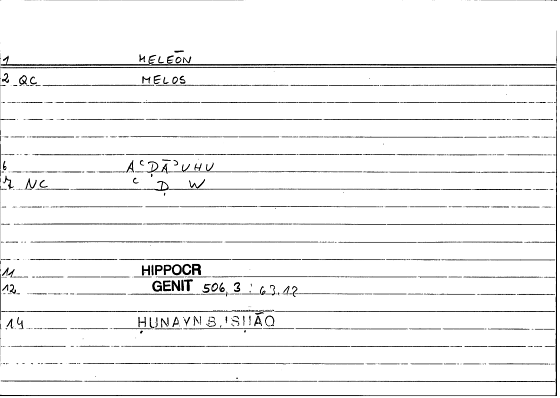 1 MELEŌN
2 QC MELOS
6 AʿḌĀʾUHU
7 NC ʿ Ḍ W
11 HIPPOCR
12 GENIT 506, 3 : 63.12
14 ḤUNAYN B. ʾISḤĀQ